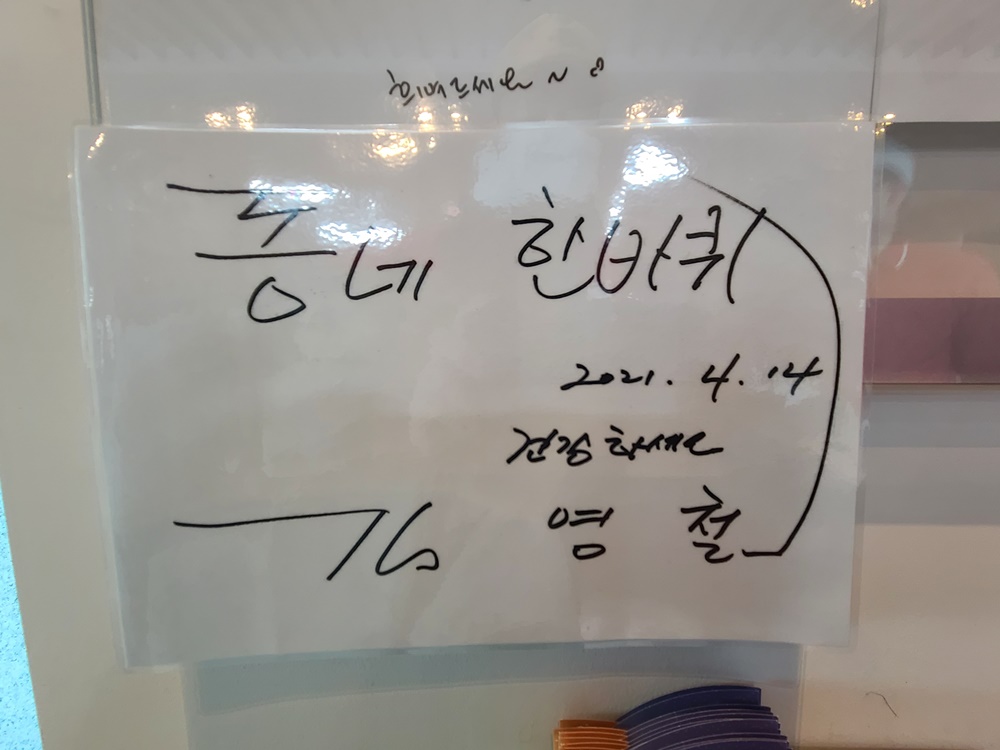 동네 한바퀴
2021. 4. 14
건강하세요
김영철